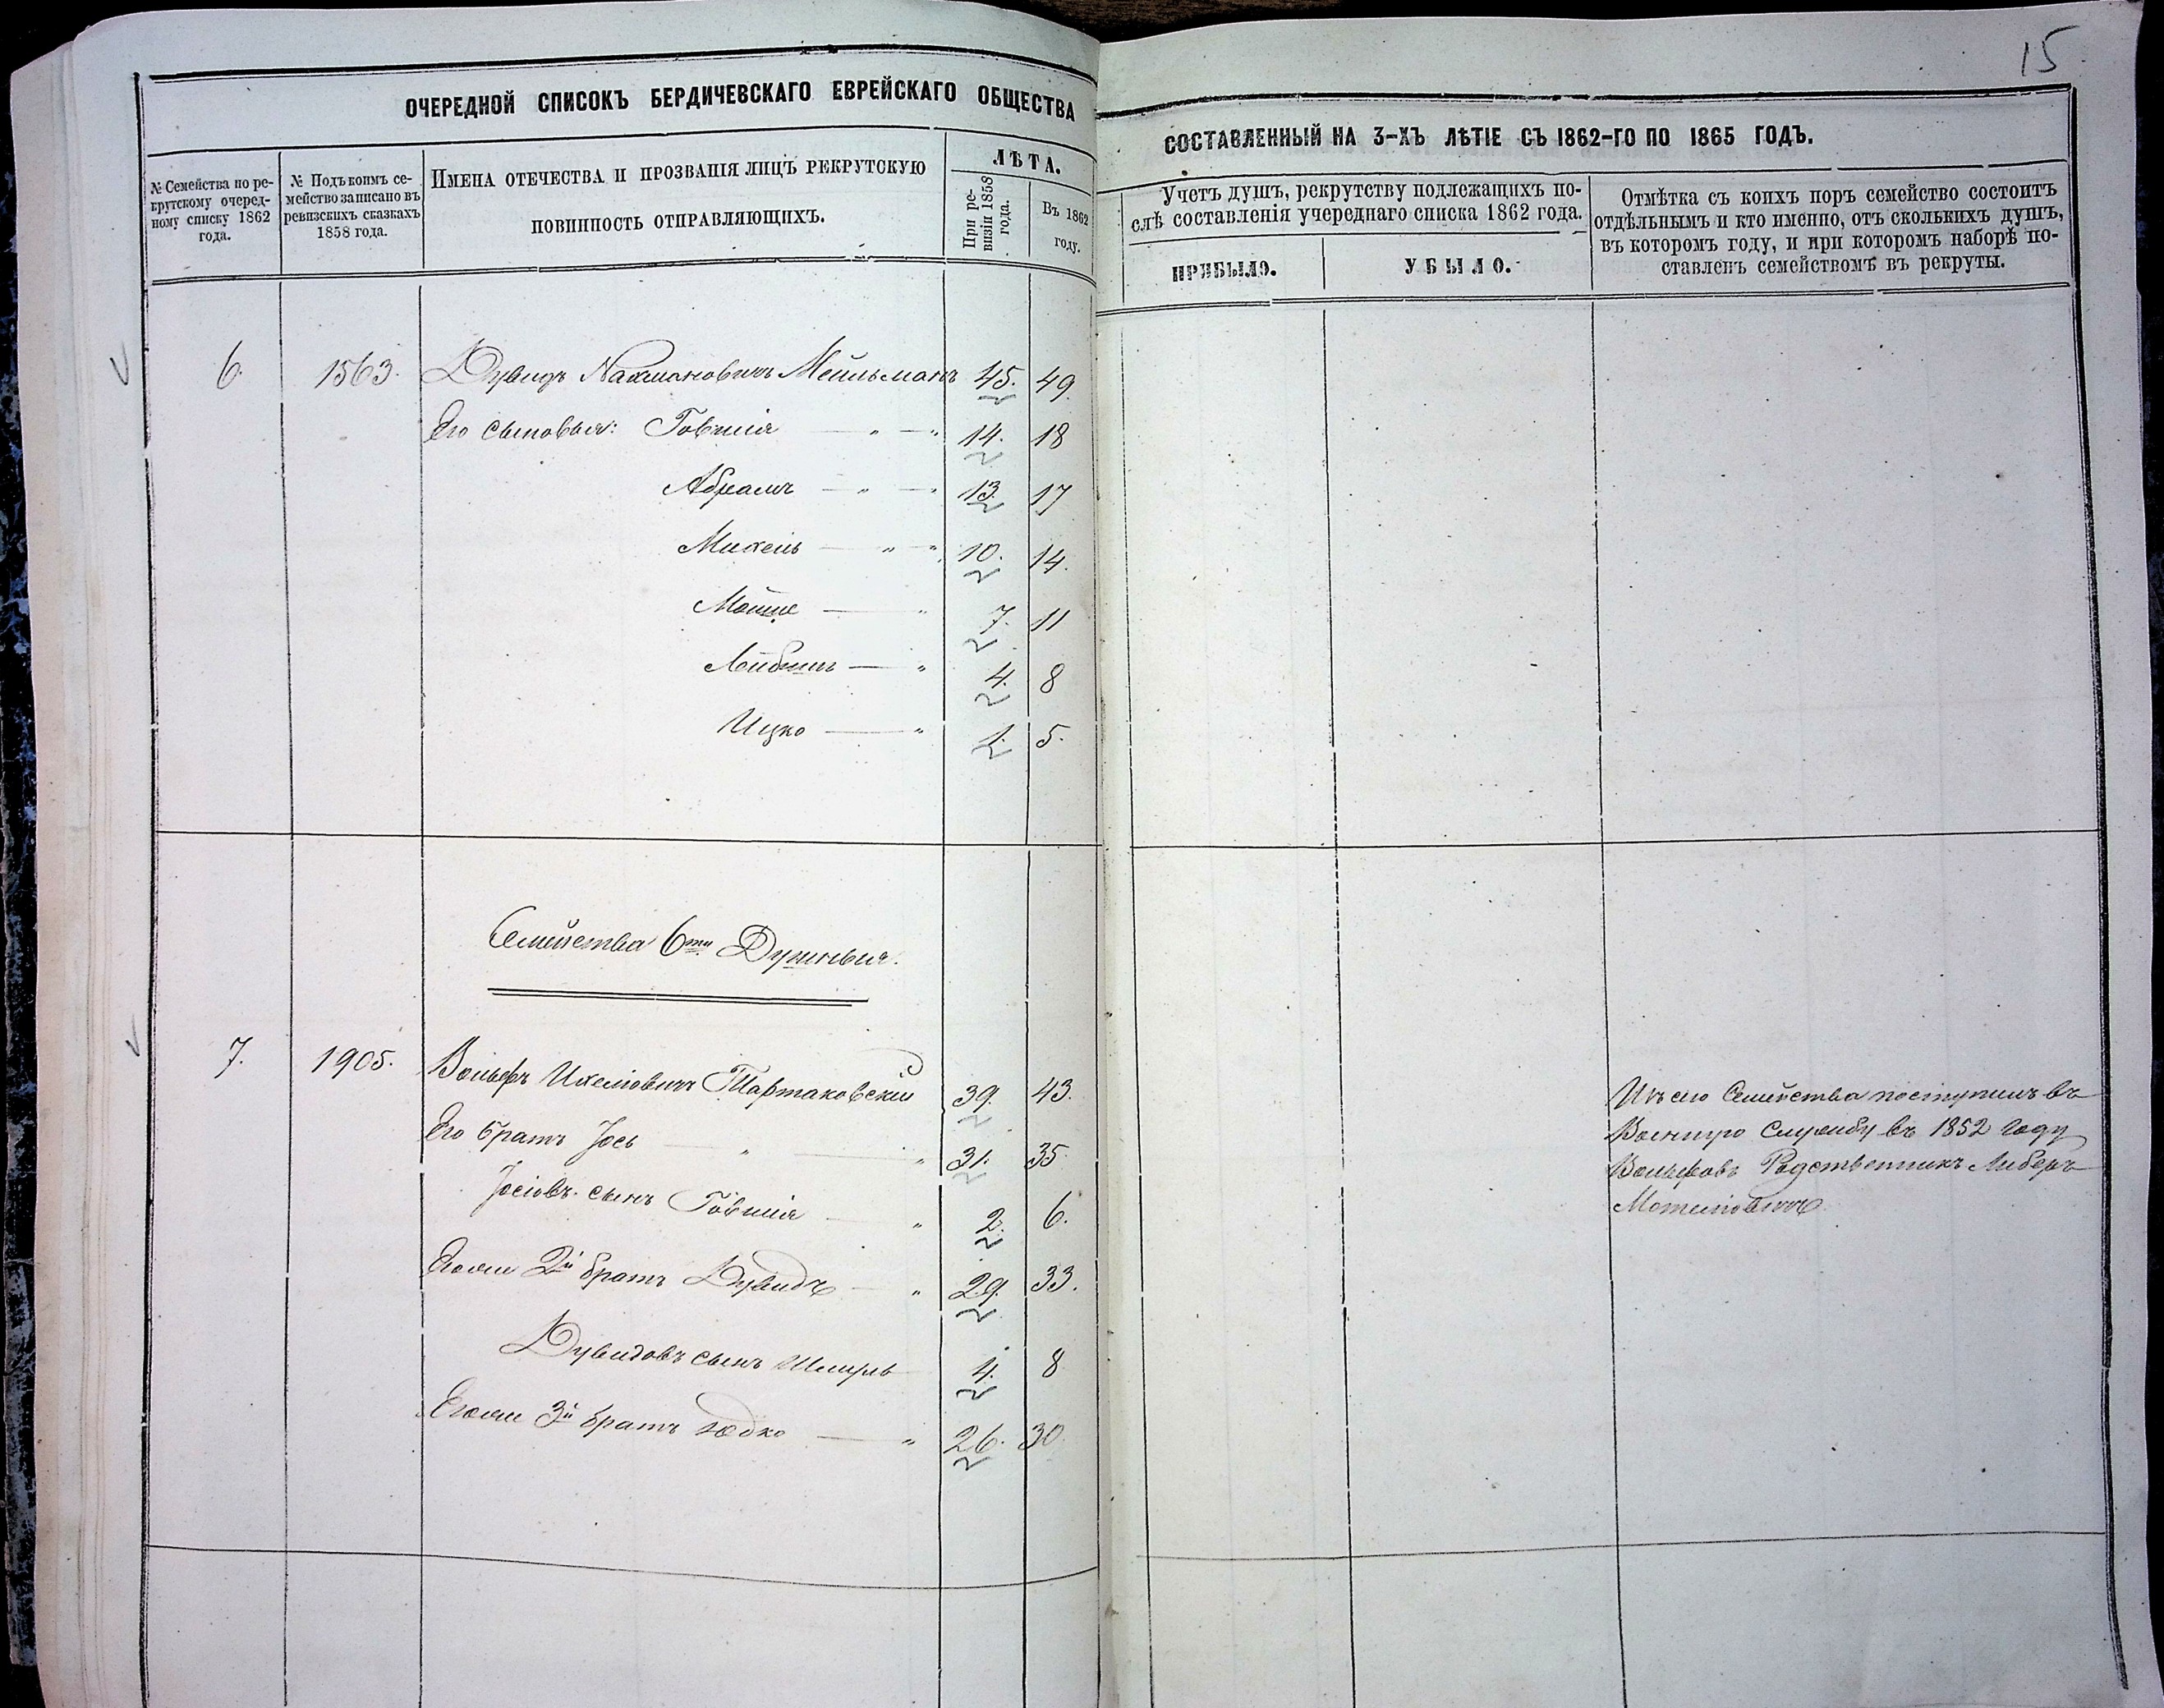 15
ОЧЕРЕДНОЙ СПИСОКЪ БЕРДИЧЕВСКАГО ЕВРЕЙСКАГО ОБЩЕСТВА
СОСТАВЛЕННЫЙ НА 3-ХЪ ЛѢТІЕ СЪ 1862-ГО ПО 1865 ГОДЪ.
№ Семейства по ре-
крутскому очеред-
ному списку 1862
года.
№ Подъ коимъ се-
мейство записано въ
ревизскихъ сказкахъ
1858 года.
ИМЕНА ОТЕЧЕСТВА И ПРОЗВАНІЯ ЛИЦЪ РЕКРУТСКУЮ
ПОВИННОСТЬ ОТПРАВЛЯЮЩИХЪ.
ЛѢТА.
При ре-
визіи 1858
года.
Въ 1862
году.
Учетъ душъ, рекрутству подлежащихъ по-
слѣ составленія учереднаго списка 1862 года.
ПРИБЫЛО.
УБЫЛО.
Отмѣтка съ коихъ поръ семейство состоитъ
отдѣльнымъ и кто именно, отъ сколькихъ душъ,
въ которомъ году, и при которомъ наборѣ по-
ставленъ семействомъ въ рекруты.
6. 1563. Дувидъ Нахмановичъ Мейльманъ 45. 49.
Его сыновья: Говшія — " — " 14. 18
Абрамъ — " — " 13. 17
Михель — " " 10. 14.
Мойше — " 7. 11
Лейбишъ — " 4. 8
Ицко — " 1. 5.
Семейства 6ти Душныя.
7. 1905. Вольфъ Ихелювичъ Тартаковскій 39. 43.
Его братъ Іось " — " 31. 35.
Іосіовъ сынъ Говшія — " 2. 6.
Егоже 2й братъ Дувидъ — " 29. 33.
Дувидовъ сынъ Шмуль 4. 8
Егоже 3й братъ — " 26. 30.
Изъ сего Семейства поступилъ въ
Военную Службу въ 1852 Году
Вольфовъ Родственникъ Либеръ
Мотелювичъ